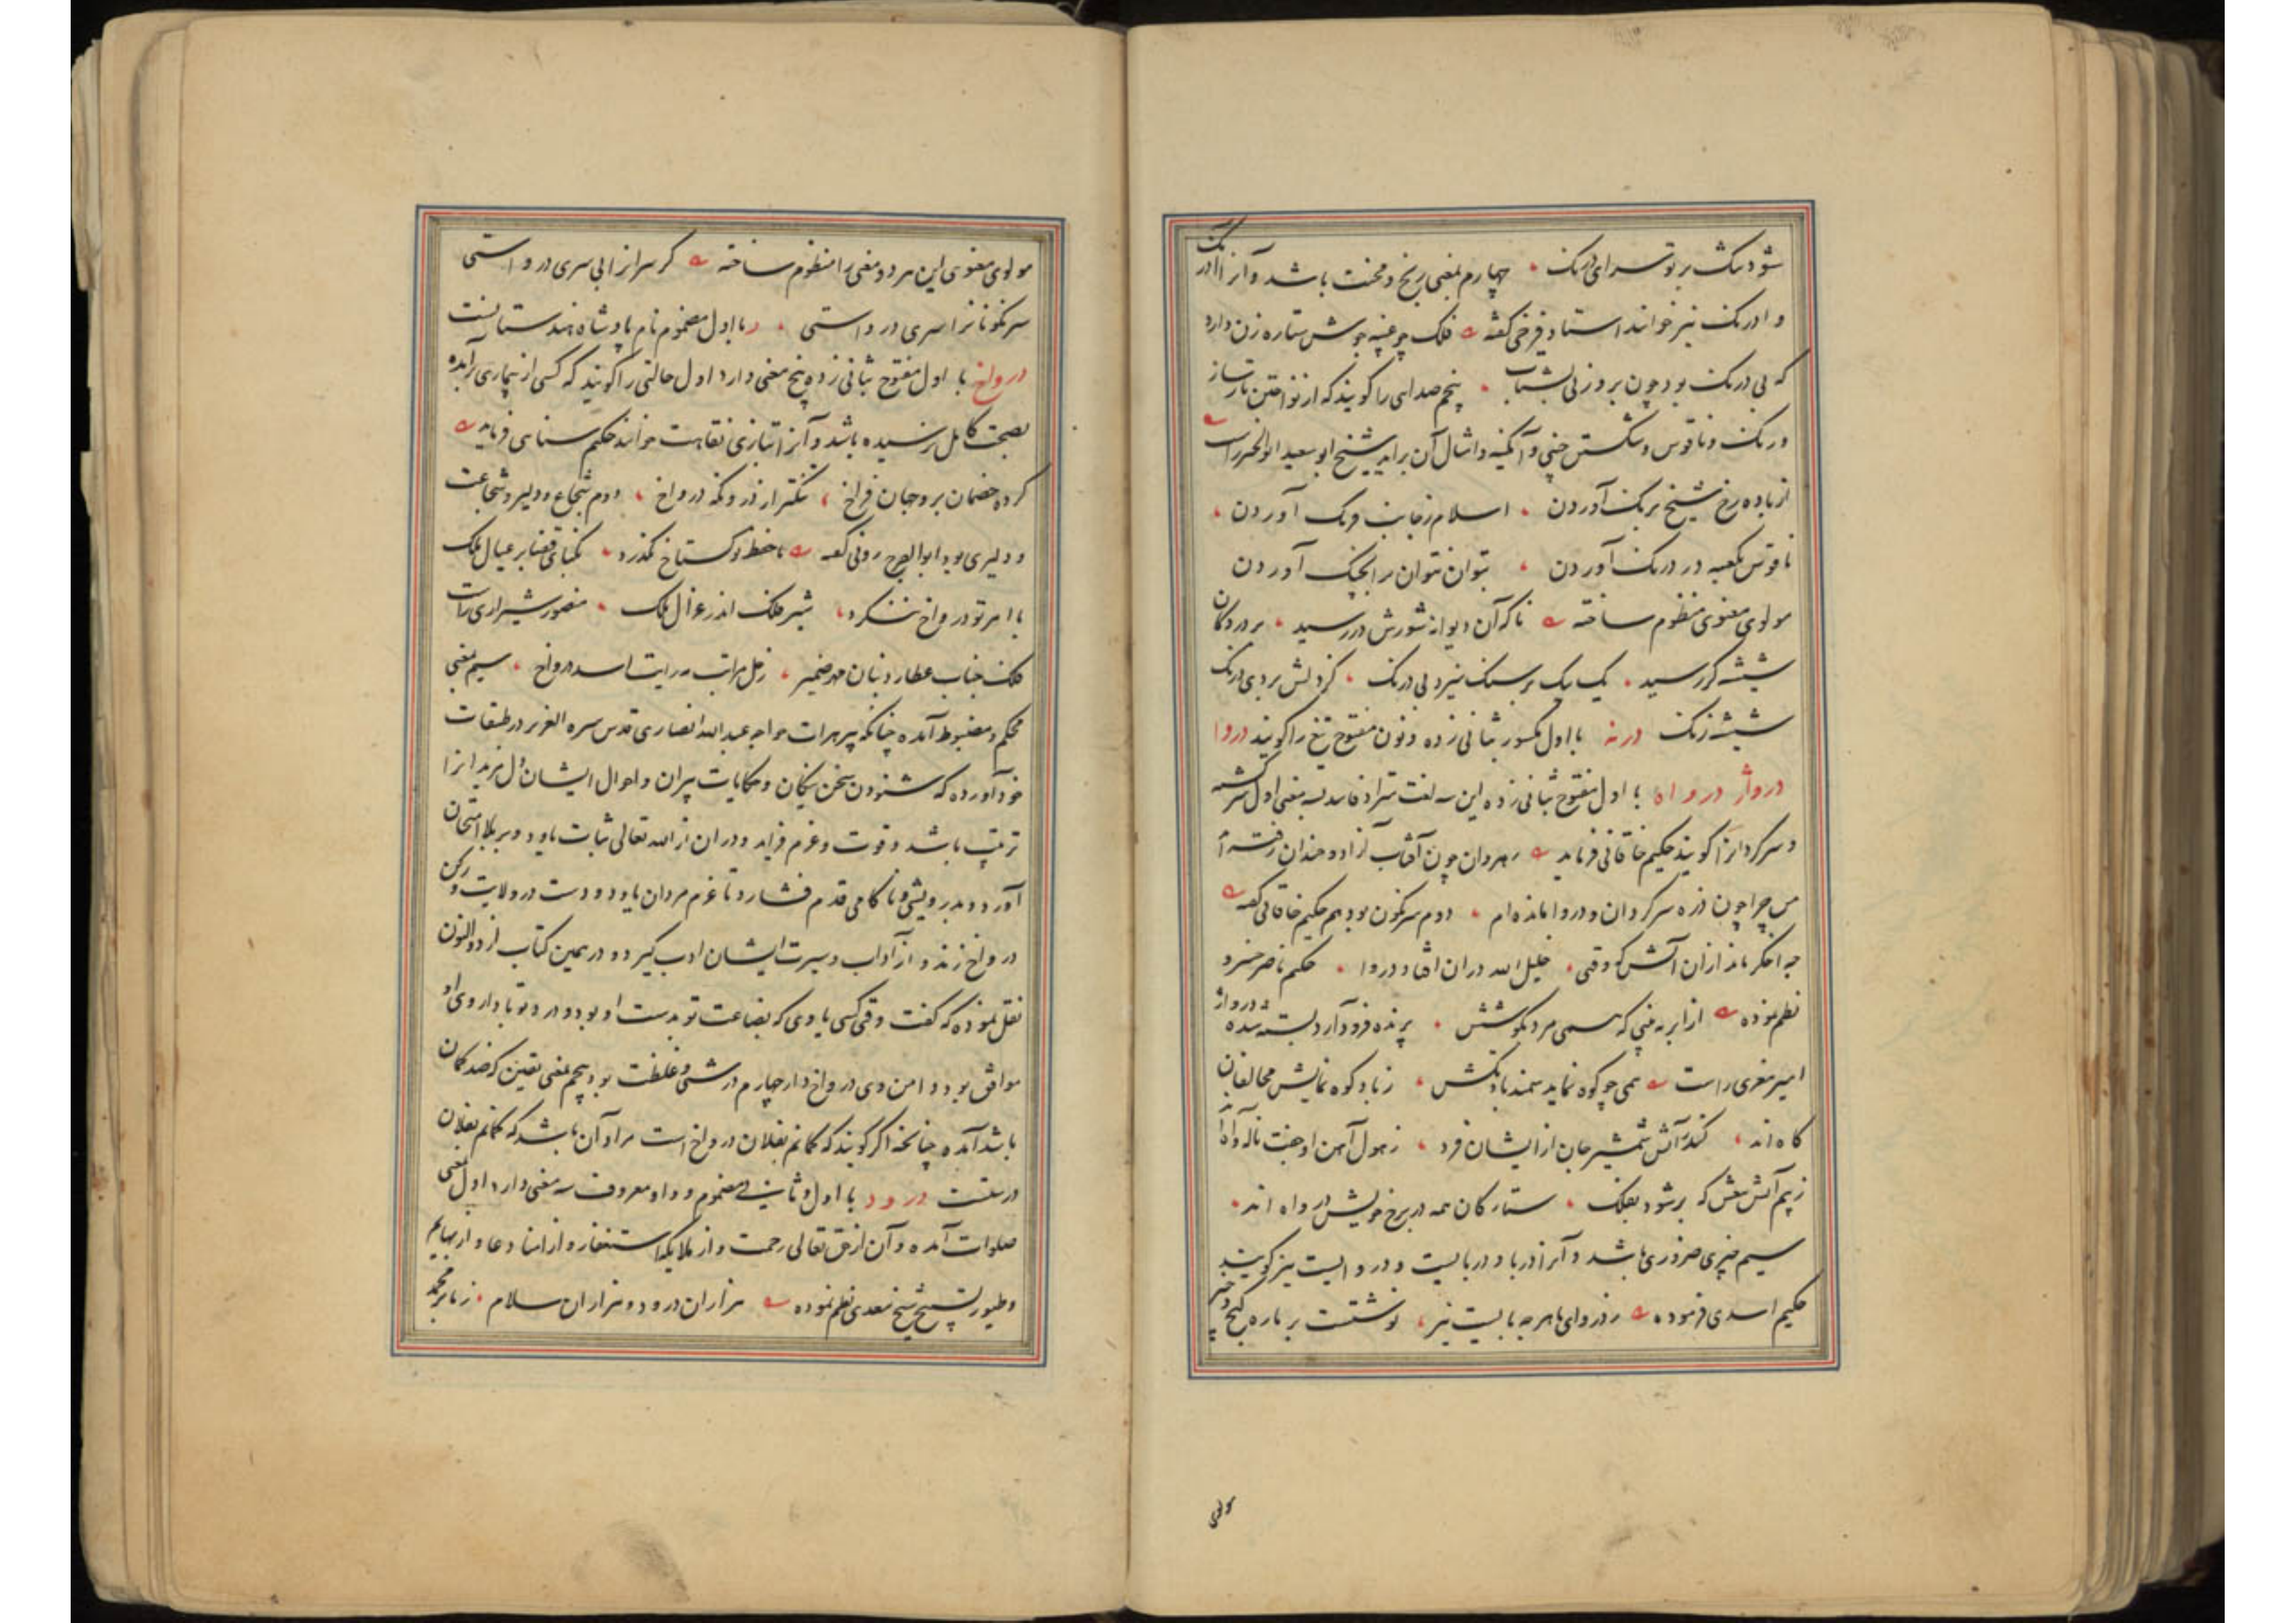 شود تنک بر تو سرای درنک چهارم بمعنی رنج و محنت باشد و آنرا آدرنک
و ادرنک نیز خوانند استاد فرخی گفته فلک چو غنچه جوشن ستاره زن دارد
که بی درنک بود چون بروز نی بشتاب پنجم صدایی را گویند که از نواختن تار ساز
و رنک و ناقوس و شکستن چینی و آبگینه و امثال آن برآید شیخ ابو سعید ابوالخیر راست
از باده رخ شیخ برنک آوردن اسلام ز جانب فرنک آوردن
ناقوس بکعبه در درنک آوردن بتوان نتوان ترا بچنک آوردن
مولوی معنوی منظوم ساخته ناکه آن دیوانه شورش در رسید بر در دکان
شیشه کر رسید یک بیک بر سنک میزد بی درنک
شیشه زنک درنه با اول مکسور بثانی زده و نون مفتوح تیغ را گویند دروا
درواژ درواه با اول مفتوح بثانی زده این سه لغت مترادفند بسه معنی اول سرکشته
و سرگردانرا گویند حکیم خاقانی فرماید رهروان چون آفتاب آزاد و خندان رفته‌اند
من چرا چون ذره سرگردان و دروا مانده‌ام دوم سرنگون بود هم حکیم خاقانی گفته
چه اخکر ماند ازان آتش که وقتی خلیل الله دران افتاد دروا حکیم ناصر خسرو
نظم نموده پرنده فرود آرد بسته شده درواژ
امیر معزی راست همی چو کوه نماید سمند باد تکش ز باد کوه نمایش مخالفان
کاه‌اند کند آتش شمشیر جان از ایشان فرد ز هول آهن او جفت ناله و آه‌اند
ز بیم آتش تیغش که بر شود بفلک ستارکان همه در برج خویش درواه اند
سیم چیزی ضروری باشد و آنرا دربا و دربایست و دروایست نیز گویند
حکیم اسدی فرموده ز دروای ها هر چه بایست نیز نوشتست بر باره گنج و چیز
مولوی
مولوی معنوی این هر دو معنی را منظوم ساخته کر سر افزا بی سری درواستی
سرنکونانرا سری درواستی با اول مضموم نام پادشاه هندستانست
درواخ با اول مفتوح بثانی زده پنج معنی دارد اول حالتی را گویند که کسی از بیماری برآمده
بصحت کامل نرسیده باشد و آنرا بتازی نقاهت خوانند حکیم سنایی فرماید
کرده خصمان برو جهان فراخ تنکتر از درونکه درواخ دوم شجاع و دلیر و شجاعت
و دلیری بود ابوالفرج رونی گفته تا خطر تو کستاخ نکذرد
با امر تو درواخ ننکرد شیر فلک اندر غزال ملک منصور شیرازی راست
فلک جناب عطارد بنان مهر ضمیر زحل مراتب مه رایت اسد درواخ سیم بمعنی
محکم و مضبوط آمده چنانکه پیر هرات خواجه عبدالله انصاری قدس سره العزیز در طبقات
خود آورده که شنودن سخن نیکان و حکایات پیران و احوال ایشان دل مرید انرا
تربیت باشد و قوت و عزم فزاید و دران از الله تعالی ثبات یابد و بر بلا امتحان
آورد و بدرویشی و ناکامی قدم فشارد تا عزم مردان یابد و دست در ولایت و رکن
درواخ زند و از آداب و سیرت ایشان ادب گیرد و در همین کتاب از ذوالنون
نقل نموده که گفت وقتی کسی یابی که بضاعت تو بدست او بود و درد تو با داروی او
موافق بود دامن وی درواخ دار چهارم درشتی و غلظت بود پنجم بمعنی یقین که ضد گمان
باشد آمده چنانچه اگر گویند که کمانم بفلان درواخ است مراد آن باشد که گمانم بفلان
درستست درود با اول و ثانی مضموم و واو معروف سه معنی دارد اول بمعنی
صلوات آمده و آن از حق تعالی رحمت و از ملایکه استغفار و از انسان دعا و از بهایم
و طیور تسبیح شیخ سعدی نظم نموده هزاران درود و هزاران سلام ز ما بر محمد